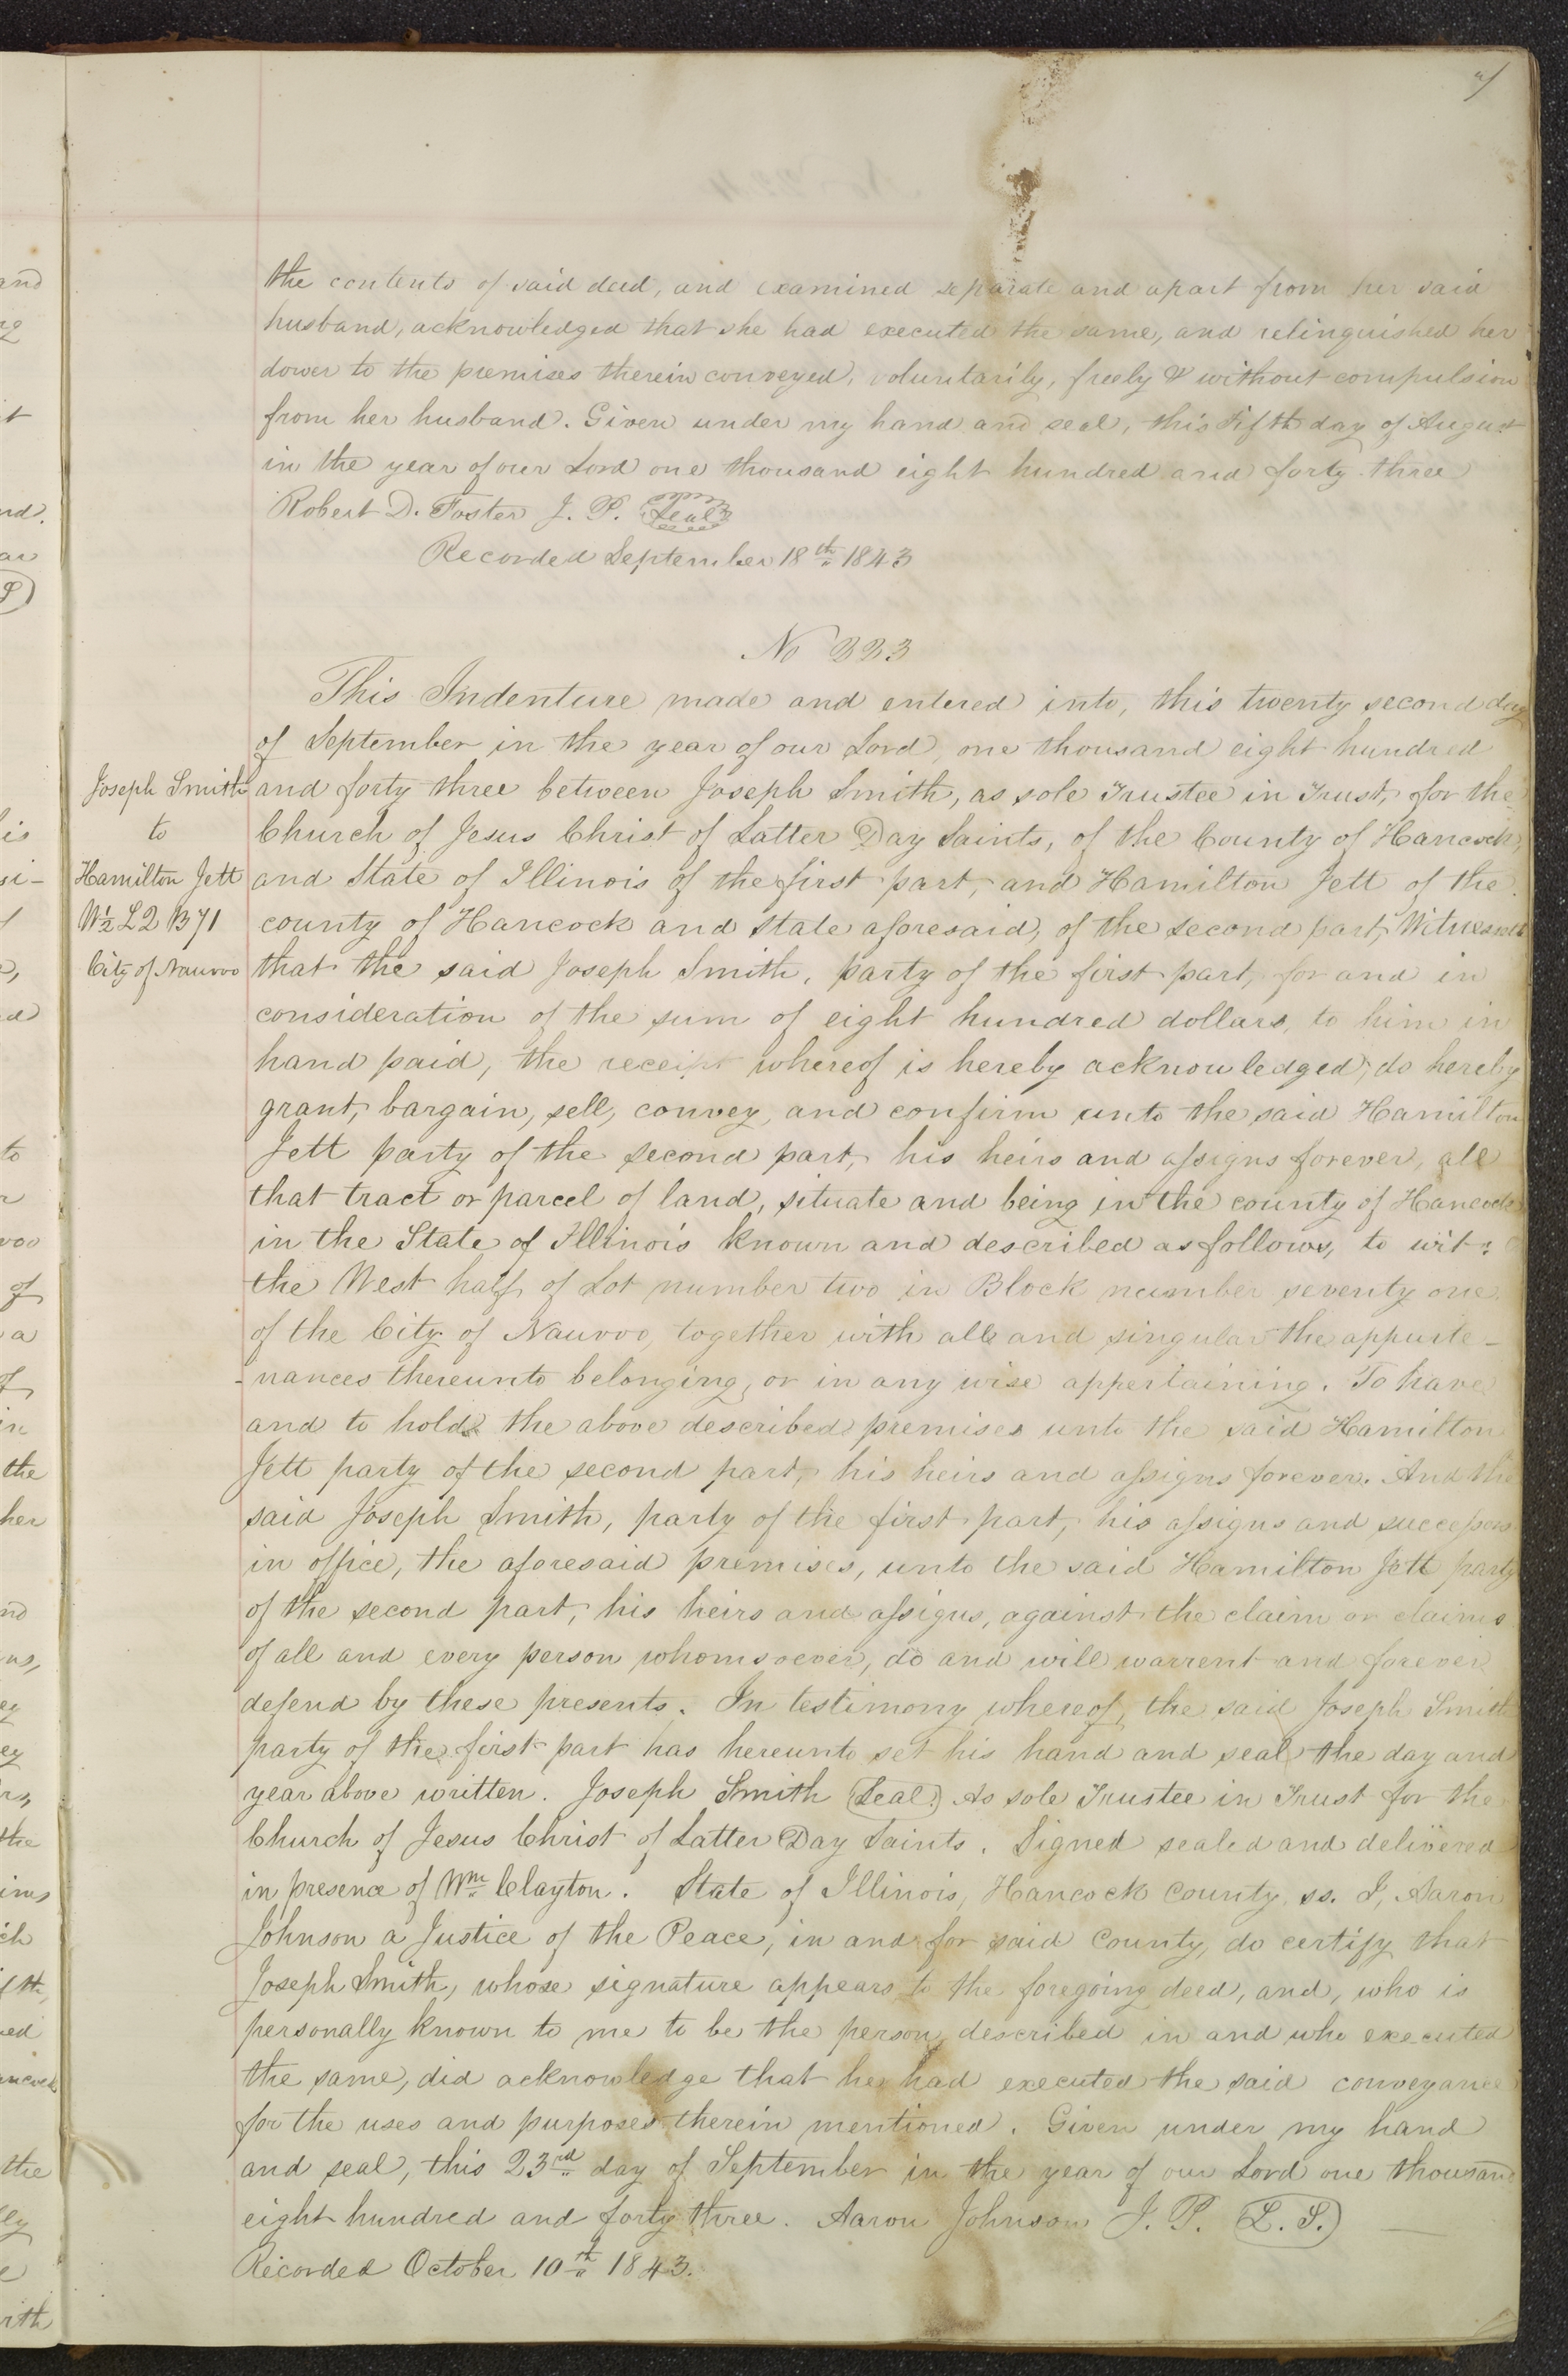 the contents of said deed, and examined separate and apart from her said
husband, acknowledged that she had executed the same, and relinquished her
dower to the premises therein conveyed, voluntarily, freely & without compulsion
from her husband. Given under my hand and seal, this fifth day of August
in the year of our Lord one thousand eight hundred and forty three
Robert D. Foster J. P. Seal
Recorded September 18th 1843
No 223
This Indenture made and entered into, this twenty second day
of September in the year of our Lord, one thousand eight hundred
Joseph Smith
to
Hamilton Jett
W½ L2 B71
City of Nauvoo
and forty three between Joseph Smith, as sole Trustee in Trust, for the
Church of Jesus Christ of Latter Day Saints, of the County of Hancock,
and State of Illinois of the first part, and Hamilton Jett of the
county of Hancock and state aforesaid, of the second part, Witnesseth
that the said Joseph Smith, party of the first part, for and in
consideration of the sum of eight hundred dollars, to him in
hand paid, the receipt whereof is hereby acknowledged, do hereby
grant, bargain, sell, convey, and confirm unto the said Hamilton
Jett party of the second part, his heirs and assigns forever, all
that tract or parcel of land, situate and being in the county of Hancock
in the State of Illinois known and described as follows, to wit:
the West half of Lot number two in Block number seventy one
of the City of Nauvoo, together with all and singular the apperte-
-nances thereunto belonging, or in any wise appertaining. To have
and to hold the above described premises unto the said Hamilton
Jett party of the second part, his heirs and assigns forever. And the
said Joseph Smith, party of the first part, his assigns and successors
in office, the aforesaid premises, unto the said Hamilton Jett party
of the second part, his heirs and assigns, against the claim or claims
of all and every person whomsoever, do and will warrent and forever
defend by these presents. In testimony whereof, the said Joseph Smith
party of the first part has hereunto set his hand and seal the day and
year above written. Joseph Smith (Seal.) As sole Trustee in Trust for the
Church of Jesus Christ of Latter Day Saints. Signed sealed and delivered
in presence of Wm Clayton. State of Illinois, Hancock County, ss. I, Aaron
Johnson a Justice of the Peace, in and for said County, do certify that
Joseph Smith, whose signature appears to the foregoing deed, and, who is
personally known to me to be the person described in and who executed
the same, did acknowledge that he had executed the said conveyance
for the uses and purposes therein mentioned. Given under my hand
and seal, this 23rd day of September in the year of our Lord one thousand
eight hundred and forty three. Aaron Johnson J. P. (L. S.)
Recorded October 10th 1843.